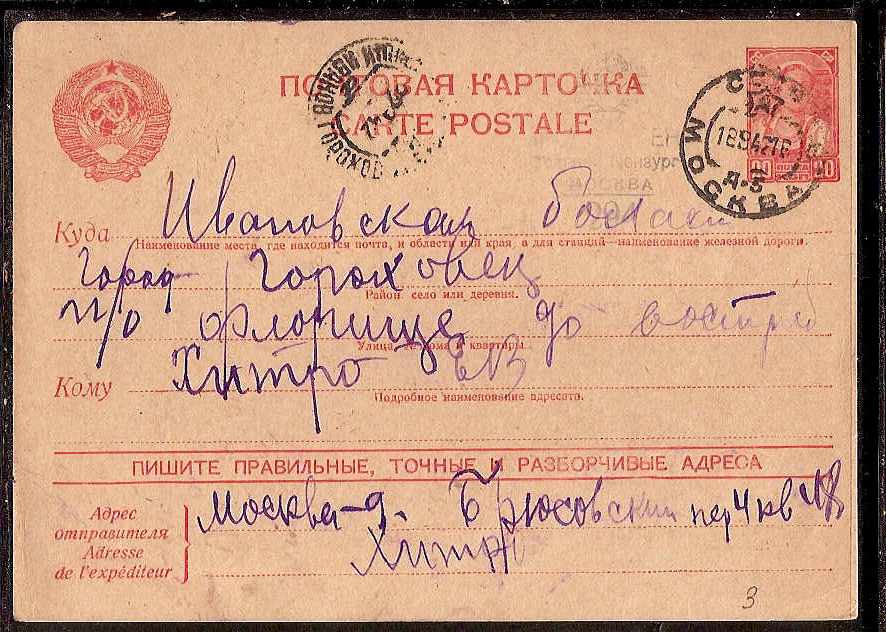 ПОЧТОВАЯ КАРТОЧКА
CARTE POSTALE
МОСКВА
МОСКВА
Куда Ивановская
Наименование места, где находится почта, и области или края, а для станций—наименование железной дороги.
город Гороховец
Район, село или деревня.
п/о Флорище до востреб
Улица, № дома и квартиры.
Кому Хитро
Подробное наименование адресата.
ПИШИТЕ ПРАВИЛЬНЫЕ, ТОЧНЫЕ И РАЗБОРЧИВЫЕ АДРЕСА
Адрес
отправителя
Adresse
de l'expéditeur
Москва-9. Брюсовский пер 4 кв
Хитро
3